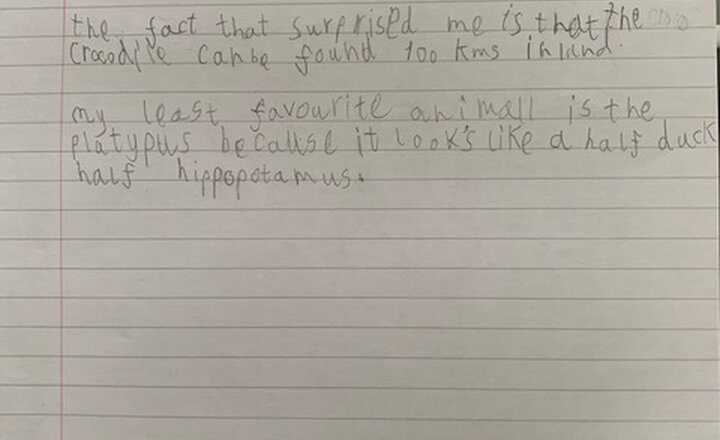 the fact that surprised me is that the
Crocodile can be found 100 kms inland.
my least favourite animall is the
platypus because it look's like a half duck
half hippopotamus.